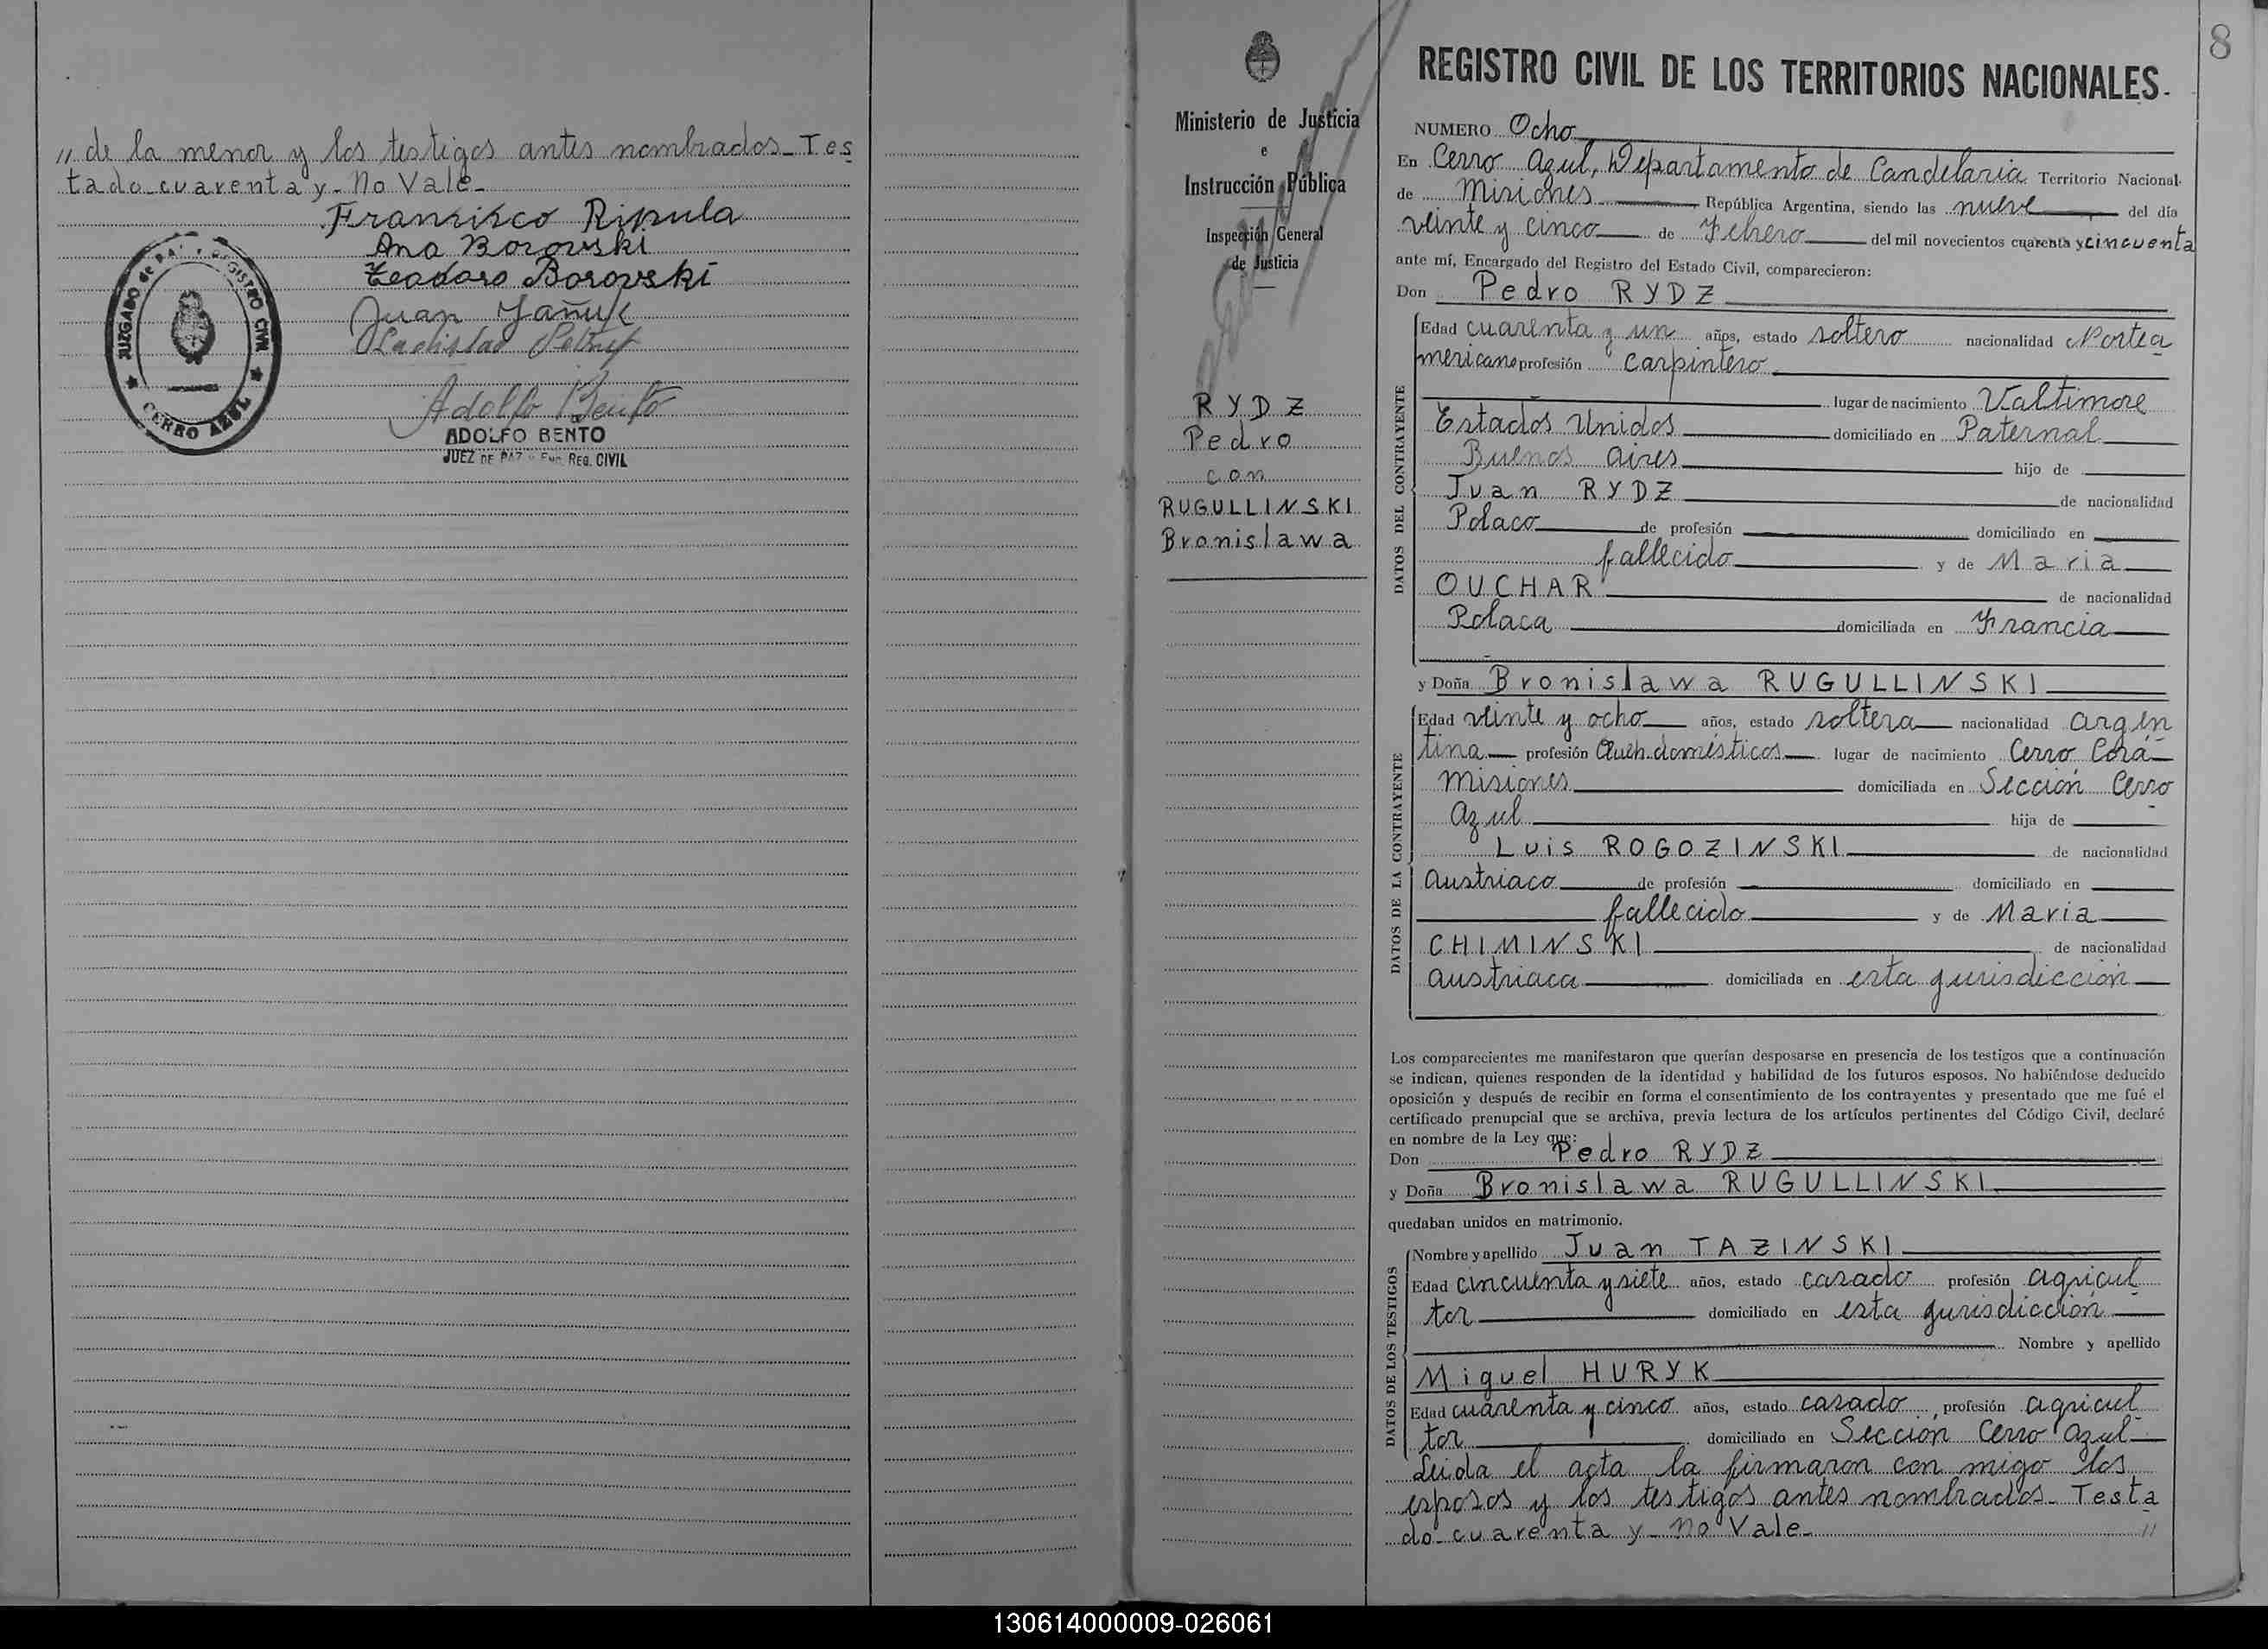 " de la menor y los testigos antes nombrados_ Tes
tado_cuarenta y_ No Vale_
Fransisco Ripula
Ana Borowski
Teodoro Borowski
Juan Yañuk
Ladislao
JUZGADO de PAZ Y REGISTRO CIVIL
★ CERRO AZUL ★
Adolfo Bento
ADOLFO BENTO
JUEZ DE PAZ Y ENC. REG. CIVIL
Ministerio de Justicia
e
Instrucción Pública
Inspección General
de Justicia
RYDZ
Pedro
con
RUGULLINSKI
Bronislawa
8
REGISTRO CIVIL DE LOS TERRITORIOS NACIONALES.
NUMERO Ocho
En Cerro Azul, Departamento de Candelaria Territorio Nacional
de Misiones República Argentina, siendo las nueve del día
veinte y cinco de Febrero del mil novecientos cuarenta y cincuenta
ante mí, Encargado del Registro del Estado Civil, comparecieron:
Don Pedro RYDZ
DATOS DEL CONTRAYENTE
Edad cuarenta y un años, estado soltero nacionalidad Nortea
mericano profesión carpintero
lugar de nacimiento Valtimore
Estados Unidos domiciliado en Paternal
Buenos Aires hijo de
Juan RYDZ de nacionalidad
Polaco de profesión domiciliado en
fallecido y de Maria
OUCHAR de nacionalidad
Polaca domiciliada en Francia
y Doña Bronislawa RUGULLINSKI
DATOS DE LA CONTRAYENTE
Edad veinte y ocho años, estado soltera nacionalidad argen
tina profesión Queh. domésticos lugar de nacimiento Cerro Corá
Misiones domiciliada en Sección Cerro
Azul hija de
Luis ROGOZINSKI de nacionalidad
austriaco de profesión domiciliado en
fallecido y de Maria
CHIMINSKI de nacionalidad
austriaca domiciliada en esta jurisdicción
Los comparecientes me manifestaron que querían desposarse en presencia de los testigos que a continuación
se indican, quienes responden de la identidad y habilidad de los futuros esposos. No habiéndose deducido
oposición y después de recibir en forma el consentimiento de los contrayentes y presentado que me fué el
certificado prenupcial que se archiva, previa lectura de los artículos pertinentes del Código Civil, declaré
en nombre de la Ley que:
Don Pedro RYDZ
y Doña Bronislawa RUGULLINSKI
quedaban unidos en matrimonio.
DATOS DE LOS TESTIGOS
Nombre y apellido Juan TAZINSKI
Edad cincuenta y siete años, estado casado profesión agricul
tor domiciliado en esta jurisdicción
Nombre y apellido
Miguel HURYK
Edad cuarenta y cinco años, estado casado, profesión agricul
tor domiciliado en Sección Cerro Azul
Leida el acta la firmaron con migo los
esposos y los testigos antes nombrados_ Testa
do_cuarenta y_ No Vale_ "
130614000009-026061